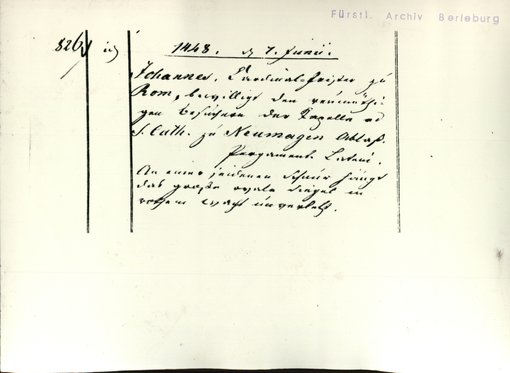 Fürstl. Archiv Berleburg
826
1448. d 7. Junii.
Johannes, Cardinal-Priester zu
Rom, bewilligt den reumüthi-
gen Besuchern der Kapelle
S. Cath. zu Neumagen Ablaß.
Pergament. Latein.
An einer seidenen Schnur hängt
das große ovale Siegel in
rothem Wachs unverletzt.